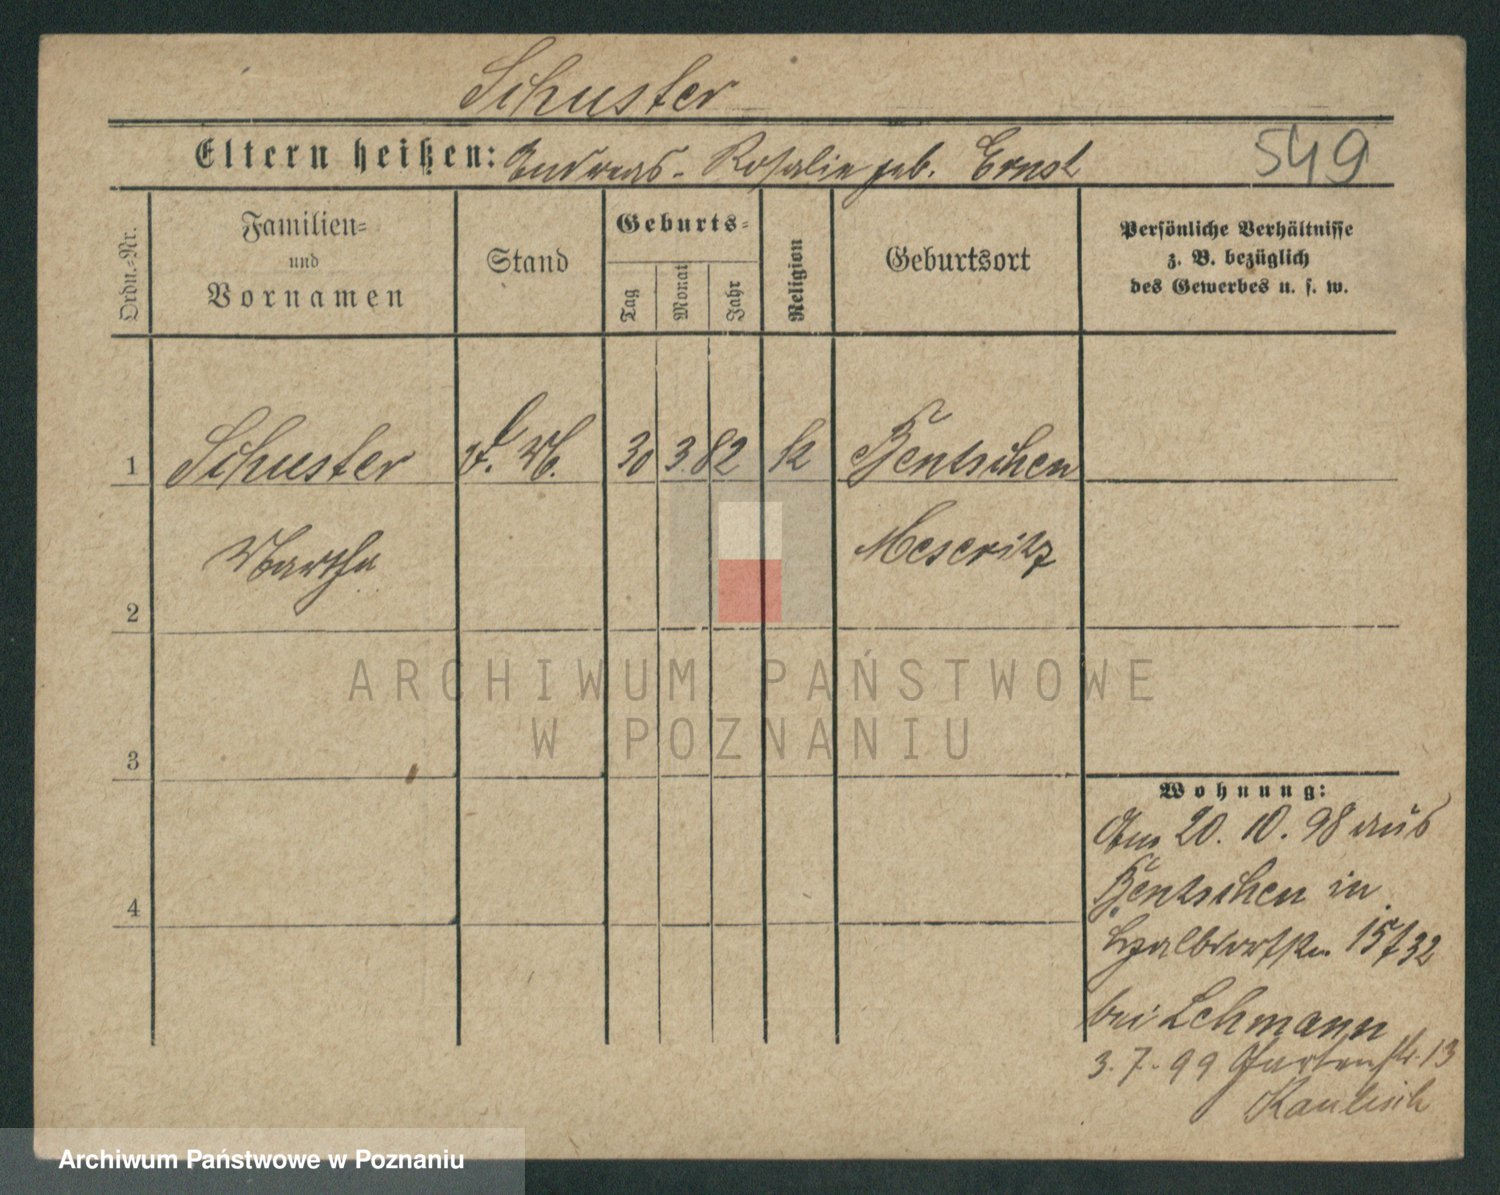 Schuster
Eltern heißen: Andreas - Rosalie geb. Ernst
549
Ordn.-Nr.
Familien-
und
Vornamen
Stand
Geburts-
Tag
Monat
Jahr
Religion
Geburtsort
Persönliche Verhältnisse
z. B. bezüglich
des Gewerbes u. s. w.
1 Schuster 30 3. 82 k Bentschen
Martha Meseritz
2
ARCHIWUM PAŃSTWOWE
W POZNANIU
3
Wohnung:
Am 20. 10. 98 aus
Bentschen in
4
Halbdorfstr. 15 32
bei Lehmann
3. 7. 99 Gartenstr. 13
Kaulisch
Archiwum Państwowe w Poznaniu